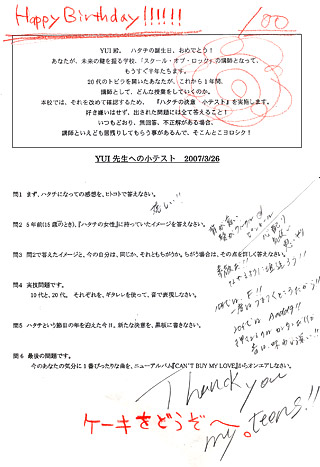 Happy Birthday!!!!!!
100
YUI 殿。 ハタチの誕生日、おめでとう!
あなたが、未来の鍵を握る学校、「スクール・オブ・ロック」の講師となって、
もうすぐ半年たちます。
20代のトビラを開いたあなたが、これから1年間、
講師として、どんな授業をしていくのか。
本校では、それを改めて確認するため、 『ハタチの決意 小テスト』を実施します。
好き嫌いはせず、出された問題には全て答えること!
いつもどおり、無回答、不正解がある場合、
講師といえども居残りしてもらう事があるんで、そこんとこヨロシク!
YUI 先生への小テスト 2007/3/26
問1 まず、ハタチになっての感想を、ヒトコトで答えなさい。
問2 5年前(15歳のとき)、『ハタチの女性』に持っていたイメージを答えなさい。
問3 問2で答えたイメージと、今の自分は、同じか、それともちがうか。ちがう場合は、その点を詳しく答えなさい。
問4 実技問題です。
10代と、20代。 それぞれを、ギタレレを使って、音で表現しなさい。
問5 ハタチという節目の年を迎えた今日。新たな決意を、黒板に書きなさい。
問6 最後の問題です。
今のあなたの気分に1番ぴったりな曲を、ニューアルバム『CAN'T BUY MY LOVE』からオンエアしなさい。
Thank you
my teens!!
ケーキをどうぞ〜。